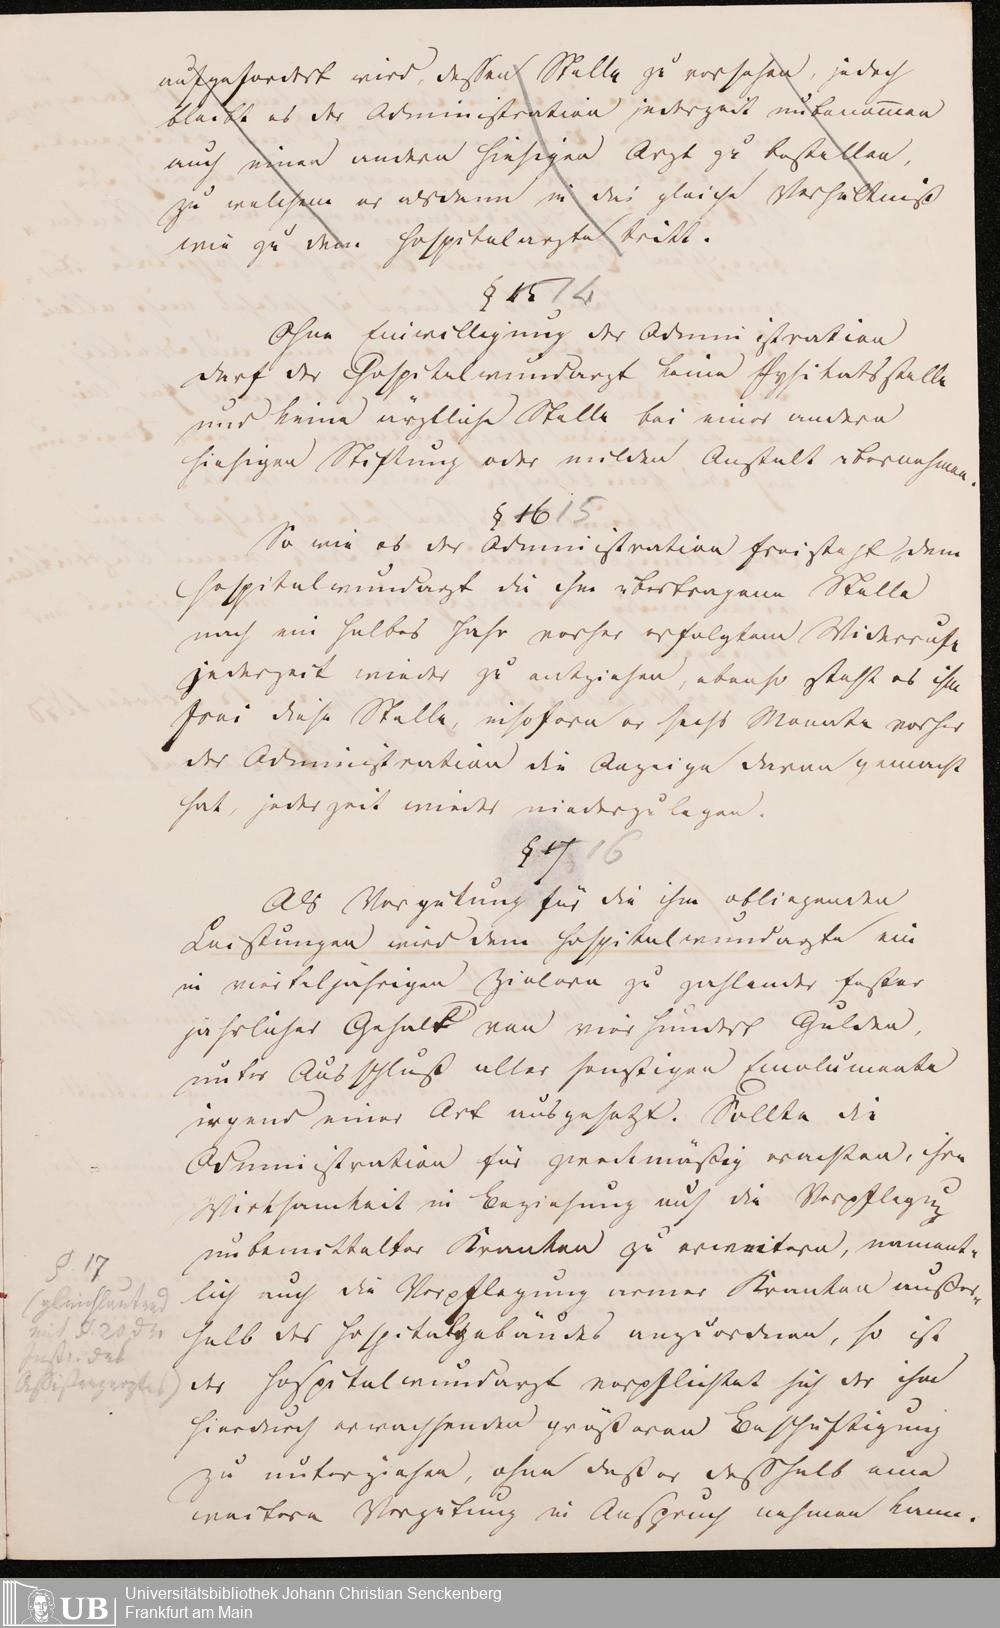 aufgefordert wird, dessen Stelle zu versehen, jedoch
bleibt es der Administration jederzeit unbenom̄en
auch einen andern hiesigen Arzt zu bestellen,
zu welchem er alsdann in das gleiche Verhältniß
wie zu dem Hospitalarzte tritt.
§ 15 14
Ohne Einwilligung der Administration
darf der Hospitalwundarzt keine Physikatsstelle
und keine ärztliche Stelle bei einer andern
hiesigen Stiftung oder milden Anstalt übernehmen.
§ 16 15
So wie es der Administration freisteht, dem
Hospitalwundarzt die ihm übertragene Stelle
nach ein halbes Jahr vorher erfolgtem Widerrufe
jederzeit wieder zu entziehen, ebenso steht es ihm
frei diese Stelle, insofern er sechs Monate vorher
der Administration die Anzeige davon gemacht
hat, jederzeit wieder niederzulegen.
§ 17 16
Als Vergütung für die ihm obliegenden
Leistungen wird dem Hospitalwundarzte ein
in vierteljährigen Zielern zu zahlender fester
jährlicher Gehalt von vierhundert Gulden,
unter Ausschluß aller sonstigen Emolumente
irgend einer Art ausgesetzt. Sollte die
Administration für zweckmäßig erachten, ihre
Wirksamkeit in Beziehung auf die Verpflegung
unbemittelter Kranken zu erweitern, nament-
lich auch die Verpflegung armer Kranken außer-
halb des Hospitalgebäudes anzuordnen, so ist
der Hospitalwundarzt verpflichtet sich der ihm
hierdurch erwachsenden größeren Beschäftigung
zu unterziehen, ohne daß er desshalb eine
weitere Vergütung in Anspruch nehmen kann.
§. 17
(gleichlautend
mit §. 20 der
Instr. des
Assistenzarztes)
UB Universitätsbibliothek Johann Christian Senckenberg
Frankfurt am Main